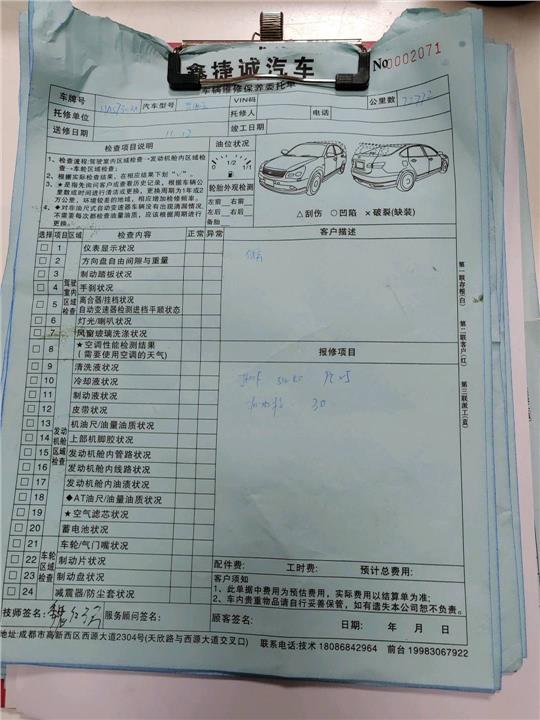 鑫捷诚汽车
No 0002071
车辆维修保养委托单
车牌号 汽车型号 VIN码 公里数
托修单位 托修人 电话
送修日期 11.13 竣工日期
检查项目说明 油位状况
1、检查流程:驾驶室内区域检查→发动机舱内区域检查→车轮区域检查;
2、根据实际检查结果,在相应结果下划"√"。
3、★是指先询问客户或查看历史记录,根据车辆公里数或时间进行清洁或更换,更换周期为1年或2万公里,环境较差的地域,相应增加检修频率。
4、◆对非油尺式自动变速器车辆没有出现滴漏情况,不需要每次都检查油量油质,应该根据周期进行更换。
0 1/2 1/1
轮胎外观检测
左前 右前
左后 右后
备胎
△刮伤 ○凹陷 ×破裂(缺装)
选择 项目 区域 检查内容 正常 异常 客户描述
1 仪表显示状况
2 方向盘自由间隙与重量
3 制动踏板状况
4 手刹状况
5 离合器/挂档状况
自动变速器检测进档平顺状态
6 灯光/喇叭状况
7 风窗玻璃洗涤状况
8 ★空调性能检测结果
(需要使用空调的天气)
驾驶室内区域检查
报修项目
9 清洗液状况
10 冷却液状况
11 制动液状况
12 皮带状况
13 机油尺/油量油质状况
14 上部机脚胶状况
15 发动机舱内管路状况
16 发动机舱内线路状况
17 发动机舱内油渍状况
18 ◆AT油尺/油量油质状况
19 ★空气滤芯状况
20 蓄电池状况
发动机舱区域检查
30
21 车轮/气门嘴状况
22 制动片状况
23 制动盘状况
24 减震器/防尘套状况
车轮区域检查
配件费: 工时费: 预计总费用:
客户须知
1、此单据中费用为预估费用,实际费用以结算单为准;
2、车内贵重物品请自行妥善保管,如有遗失本公司恕不负责。
技师签名: 服务顾问签名: 顾客签名: 日期: 年 月 日
地址:成都市高新西区西源大道2304号(天欣路与西源大道交叉口) 联系电话:技术 18086842964 前台 19983067922
第一联存根(白) 第二联客户(红) 第三联派工(蓝)